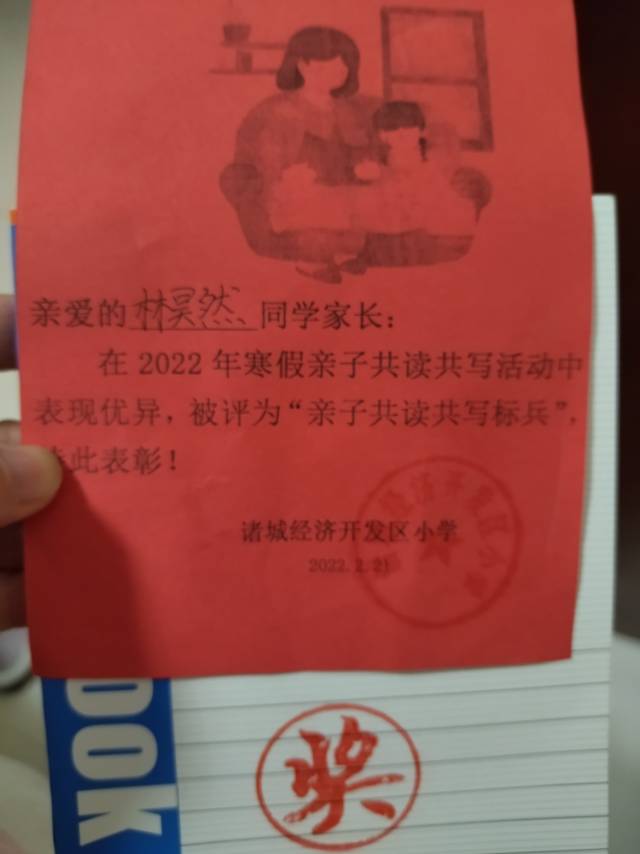 亲爱的 林昊然 同学家长：
在 2022 年寒假亲子共读共写活动中
表现优异，被评为“亲子共读共写标兵”，
此表彰！
诸城经济开发区小学
2022.2.21
经济开发区小学
ook
奖